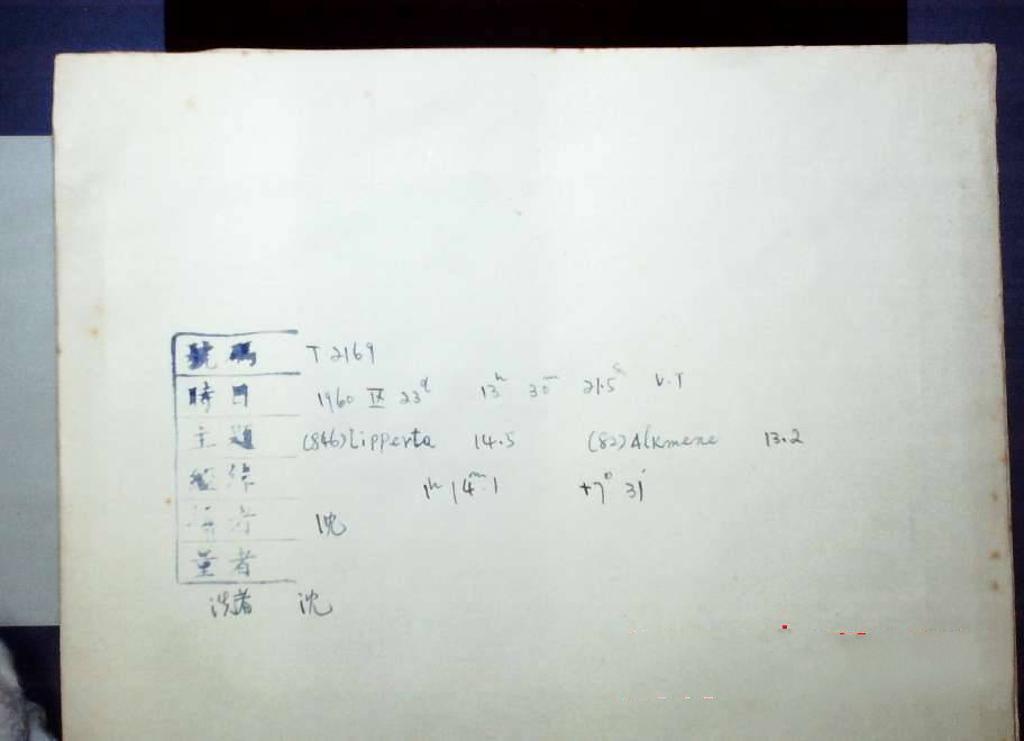 號碼 T 2169
時日 1960 Ⅸ 23ᵈ 13ʰ 30ᵐ 21.5ˢ U.T
主題 (846)Lipperta 14.5 (82)Alkmene 13.2
經緯 1ʰ 14ᵐ.1 +7° 31'
者 沈
量者
洗者 沈